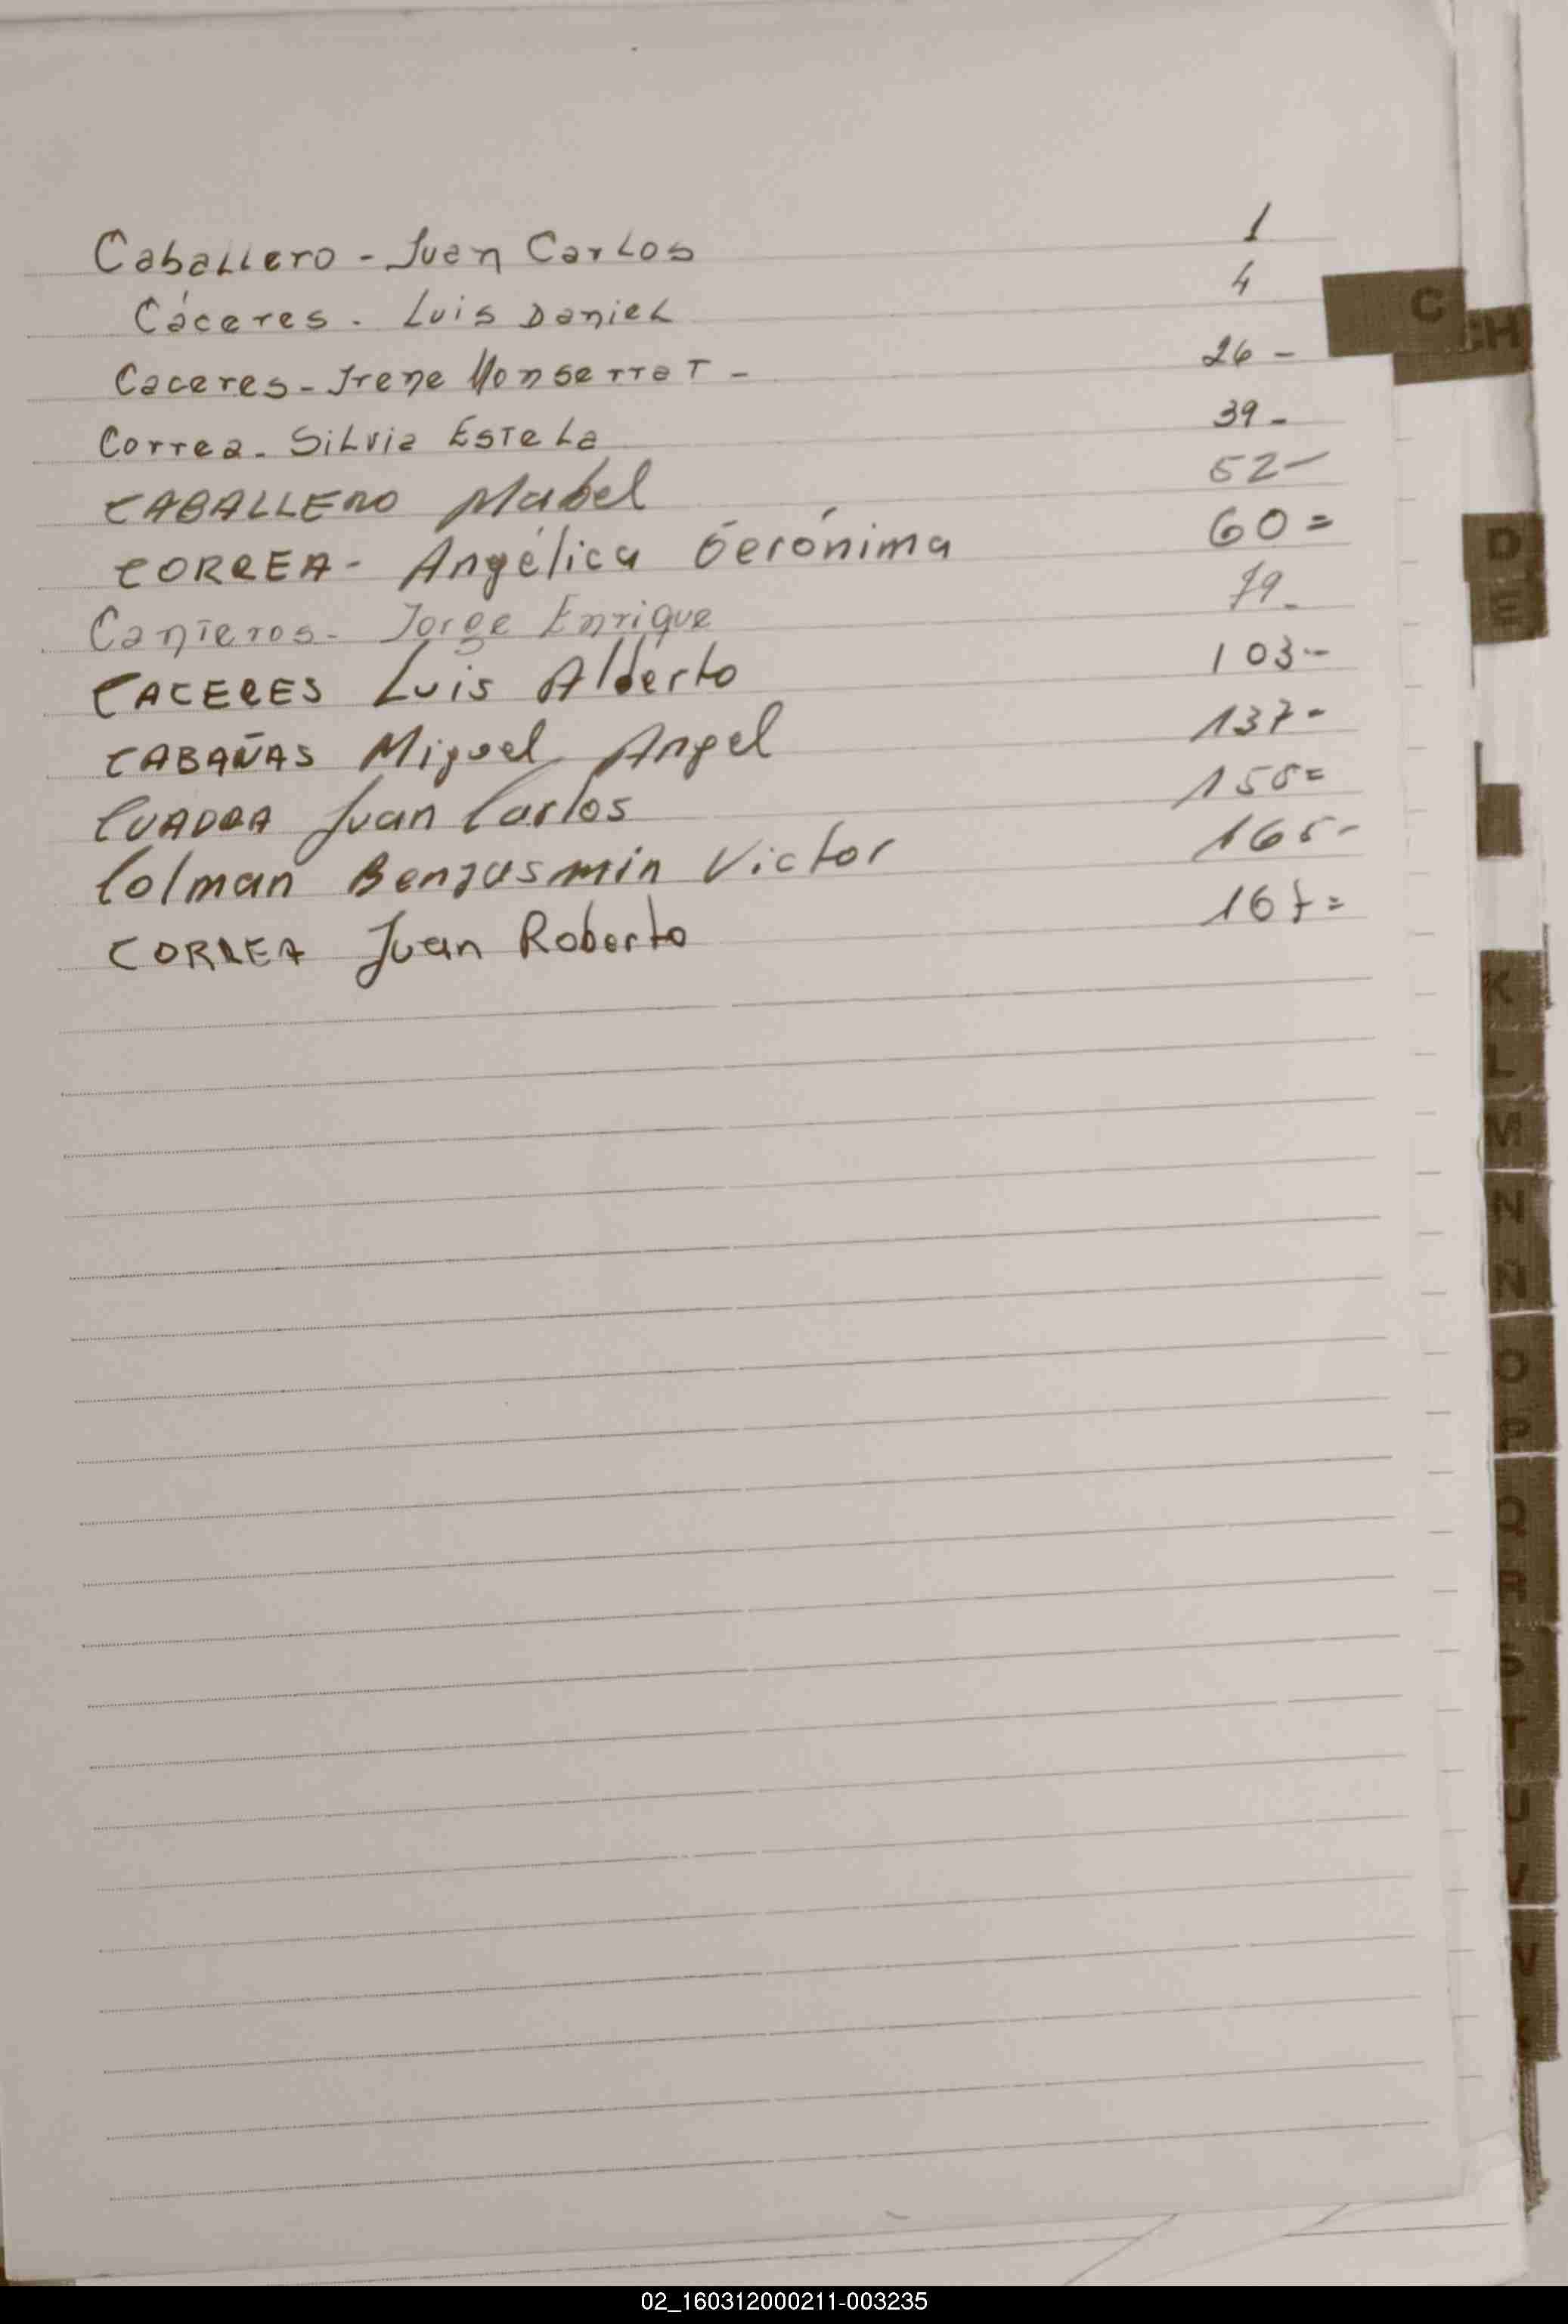 Caballero - Juan Carlos 1
Cáceres. Luis Daniel 4
Caceres - Irene Monserrat - 26 -
Correa. Silvia Estela 39 -
CABALLERO Mabel 52 -
CORREA - Angélica Gerónima 60 =
Canteros - Jorge Enrique 79 -
CACERES Luis Alberto 103 -
CABAÑAS Miguel Angel 137 -
CUADRA Juan Carlos =
Colman Victor 165 -
CORREA Juan Roberto 167 =
C
CH
D
E
K
L
M
N
N
O
P
Q
R
S
T
U
V
02_160312000211-003235